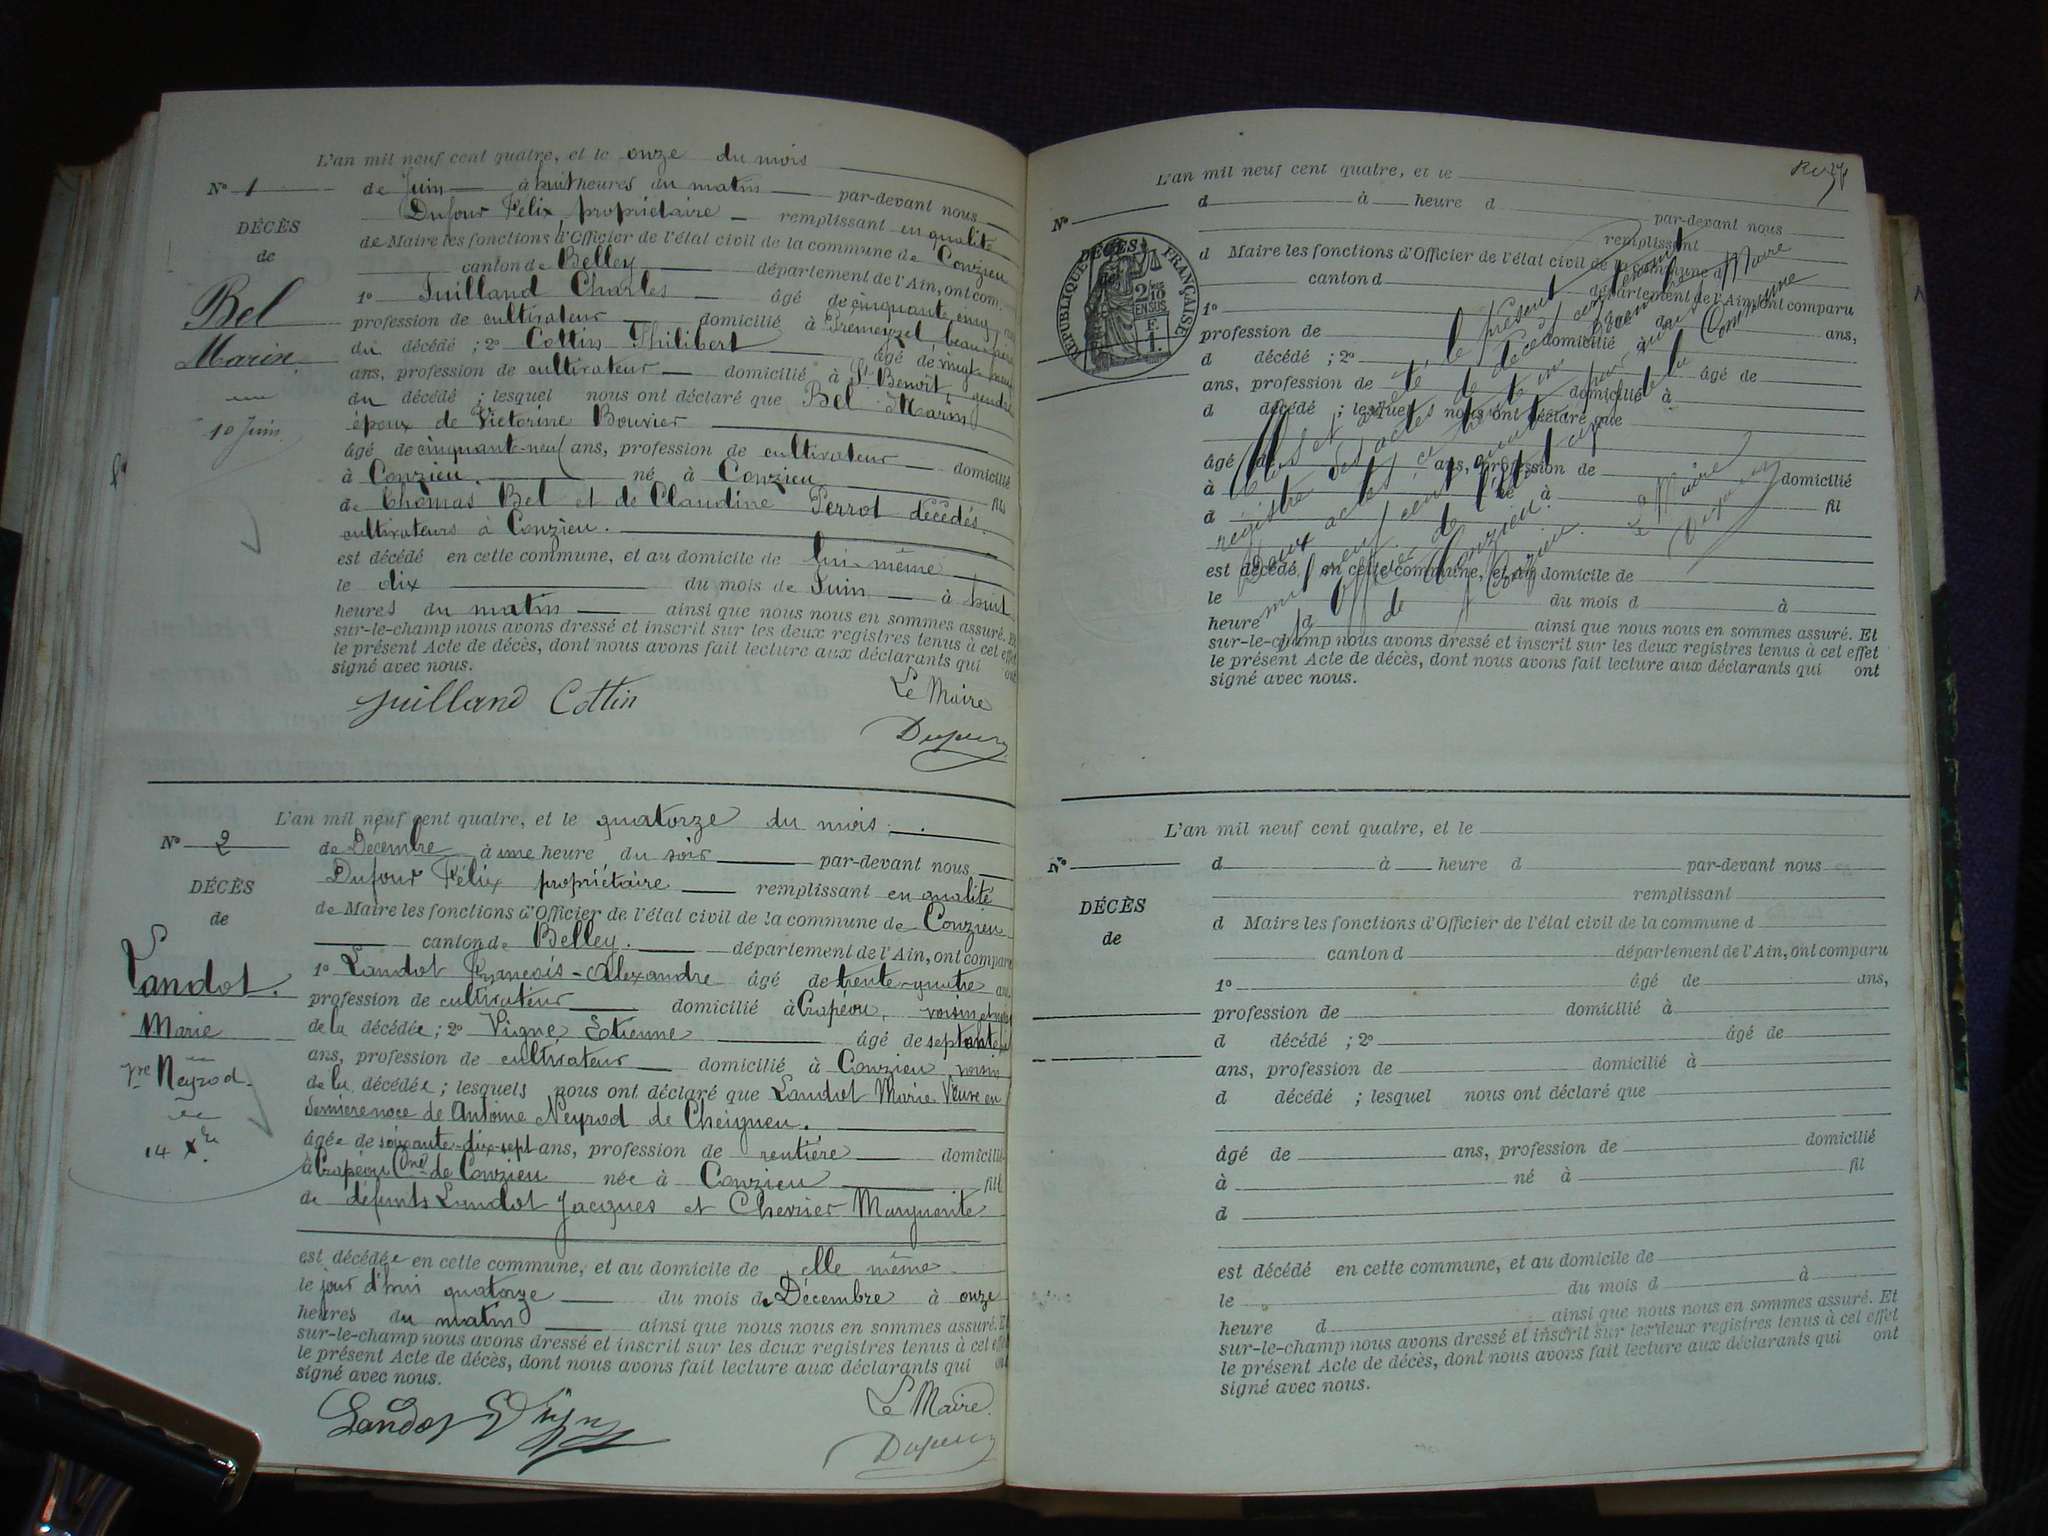 L'an mil neuf cent quatre, et le onze du mois
No 1
de Juin à huit heures du matin par-devant nous
Dufour Félix, propriétaire remplissant en qualité
DÉCÈS
de Maire les fonctions d'Officier de l'état civil de la commune de Conzieu
de
canton de Belley département de l'Ain, ont com
1o Juilland Charles âgé de cinquante cinq
Bel
profession de cultivateur domicilié à Premeyzel, beau-frère
Marin
du décédé ; 2o Cottin Philibert âgé de vingt
ans, profession de cultivateur domicilié à St Benoît gendre
du décédé ; lesquel nous ont déclaré que Bel Marin
10 Juin
époux de Victorine Bouvier
âgé de cinquant-neuf ans, profession de cultivateur domicilié
à Conzieu né à Conzieu fils
de Thomas Bel et de Claudine Perrot décédés
cultivateurs à Conzieu.
est décédé en cette commune, et au domicile de lui-même
le dix du mois de Juin à huit
heures du matin ainsi que nous nous en sommes assuré. Et
sur-le-champ nous avons dressé et inscrit sur les deux registres tenus à cet effet
le présent Acte de décès, dont nous avons fait lecture aux déclarants qui ont
signé avec nous.
Juilland Cottin
Le Maire
L'an mil neuf cent quatre, et le quatorze du mois
No 2
de Décembre à une heure du soir par-devant nous
Dufour Félix propriétaire remplissant en qualité
DÉCÈS
de Maire les fonctions d'Officier de l'état civil de la commune de Conzieu
de
canton de Belley. département de l'Ain, ont comparu
Landot.
1o Landot François-Alexandre âgé de trente-quatre an
profession de cultivateur domicilié à Crapéou, voisin
Marie
de la décédée ; 2o Vigne Etienne âgé de septante
ans, profession de cultivateur domicilié à Conzieu voisin
Vve Neyrod.
de la décédée ; lesquels nous ont déclaré que Landot Marie Veuve en
dernière noce de Antoine Neyrod de Cheignieu.
14 Xbre
âgée de soixante-dix-sept ans, profession de rentière domicilié
à Crapéou Cne de Conzieu née à Conzieu fill
de défunts Landot Jacques et Chevrier Marguerite
est décédée en cette commune, et au domicile de elle même
le jour d'hui quatorze du mois de Décembre à onze
heures du matin ainsi que nous nous en sommes assuré. Et
sur-le-champ nous avons dressé et inscrit sur les deux registres tenus à cet effet
le présent Acte de décès, dont nous avons fait lecture aux déclarants qui ont
signé avec nous.
Landot
Le Maire
L'an mil neuf cent quatre, et le
No
d à heure d par-devant nous
remplissant
DÉCÈS
RÉPUBLIQUE FRANÇAISE
2/10 EN SUS
F. 1
d Maire les fonctions d'Officier de l'état civil de la commune d
canton d département de l'Ain, ont comparu
1o âgé de ans,
profession de domicilié à
d décédé ; 2o âgé de
ans, profession de domicilié à
d décédé ; lesquel nous ont déclaré que
âgé de ans, profession de domicilié
à né à
d fil
est décédé en cette commune, et au domicile de
le du mois d à
heure d ainsi que nous nous en sommes assuré. Et
sur-le-champ nous avons dressé et inscrit sur les deux registres tenus à cet effet
le présent Acte de décès, dont nous avons fait lecture aux déclarants qui ont
signé avec nous.
le présent
registre des actes de décès
mil neuf cent quatre
de la Commune
de Conzieu.
Le Maire
L'an mil neuf cent quatre, et le
No
d à heure d par-devant nous
remplissant
DÉCÈS
d Maire les fonctions d'Officier de l'état civil de la commune d
de
canton d département de l'Ain, ont comparu
1o âgé de ans,
profession de domicilié à
d décédé ; 2o âgé de
ans, profession de domicilié à
d décédé ; lesquel nous ont déclaré que
âgé de ans, profession de domicilié
à né à fil
d
est décédé en cette commune, et au domicile de
le du mois d à
heure d ainsi que nous nous en sommes assuré. Et
sur-le-champ nous avons dressé et inscrit sur les deux registres tenus à cet effet
le présent Acte de décès, dont nous avons fait lecture aux déclarants qui ont
signé avec nous.